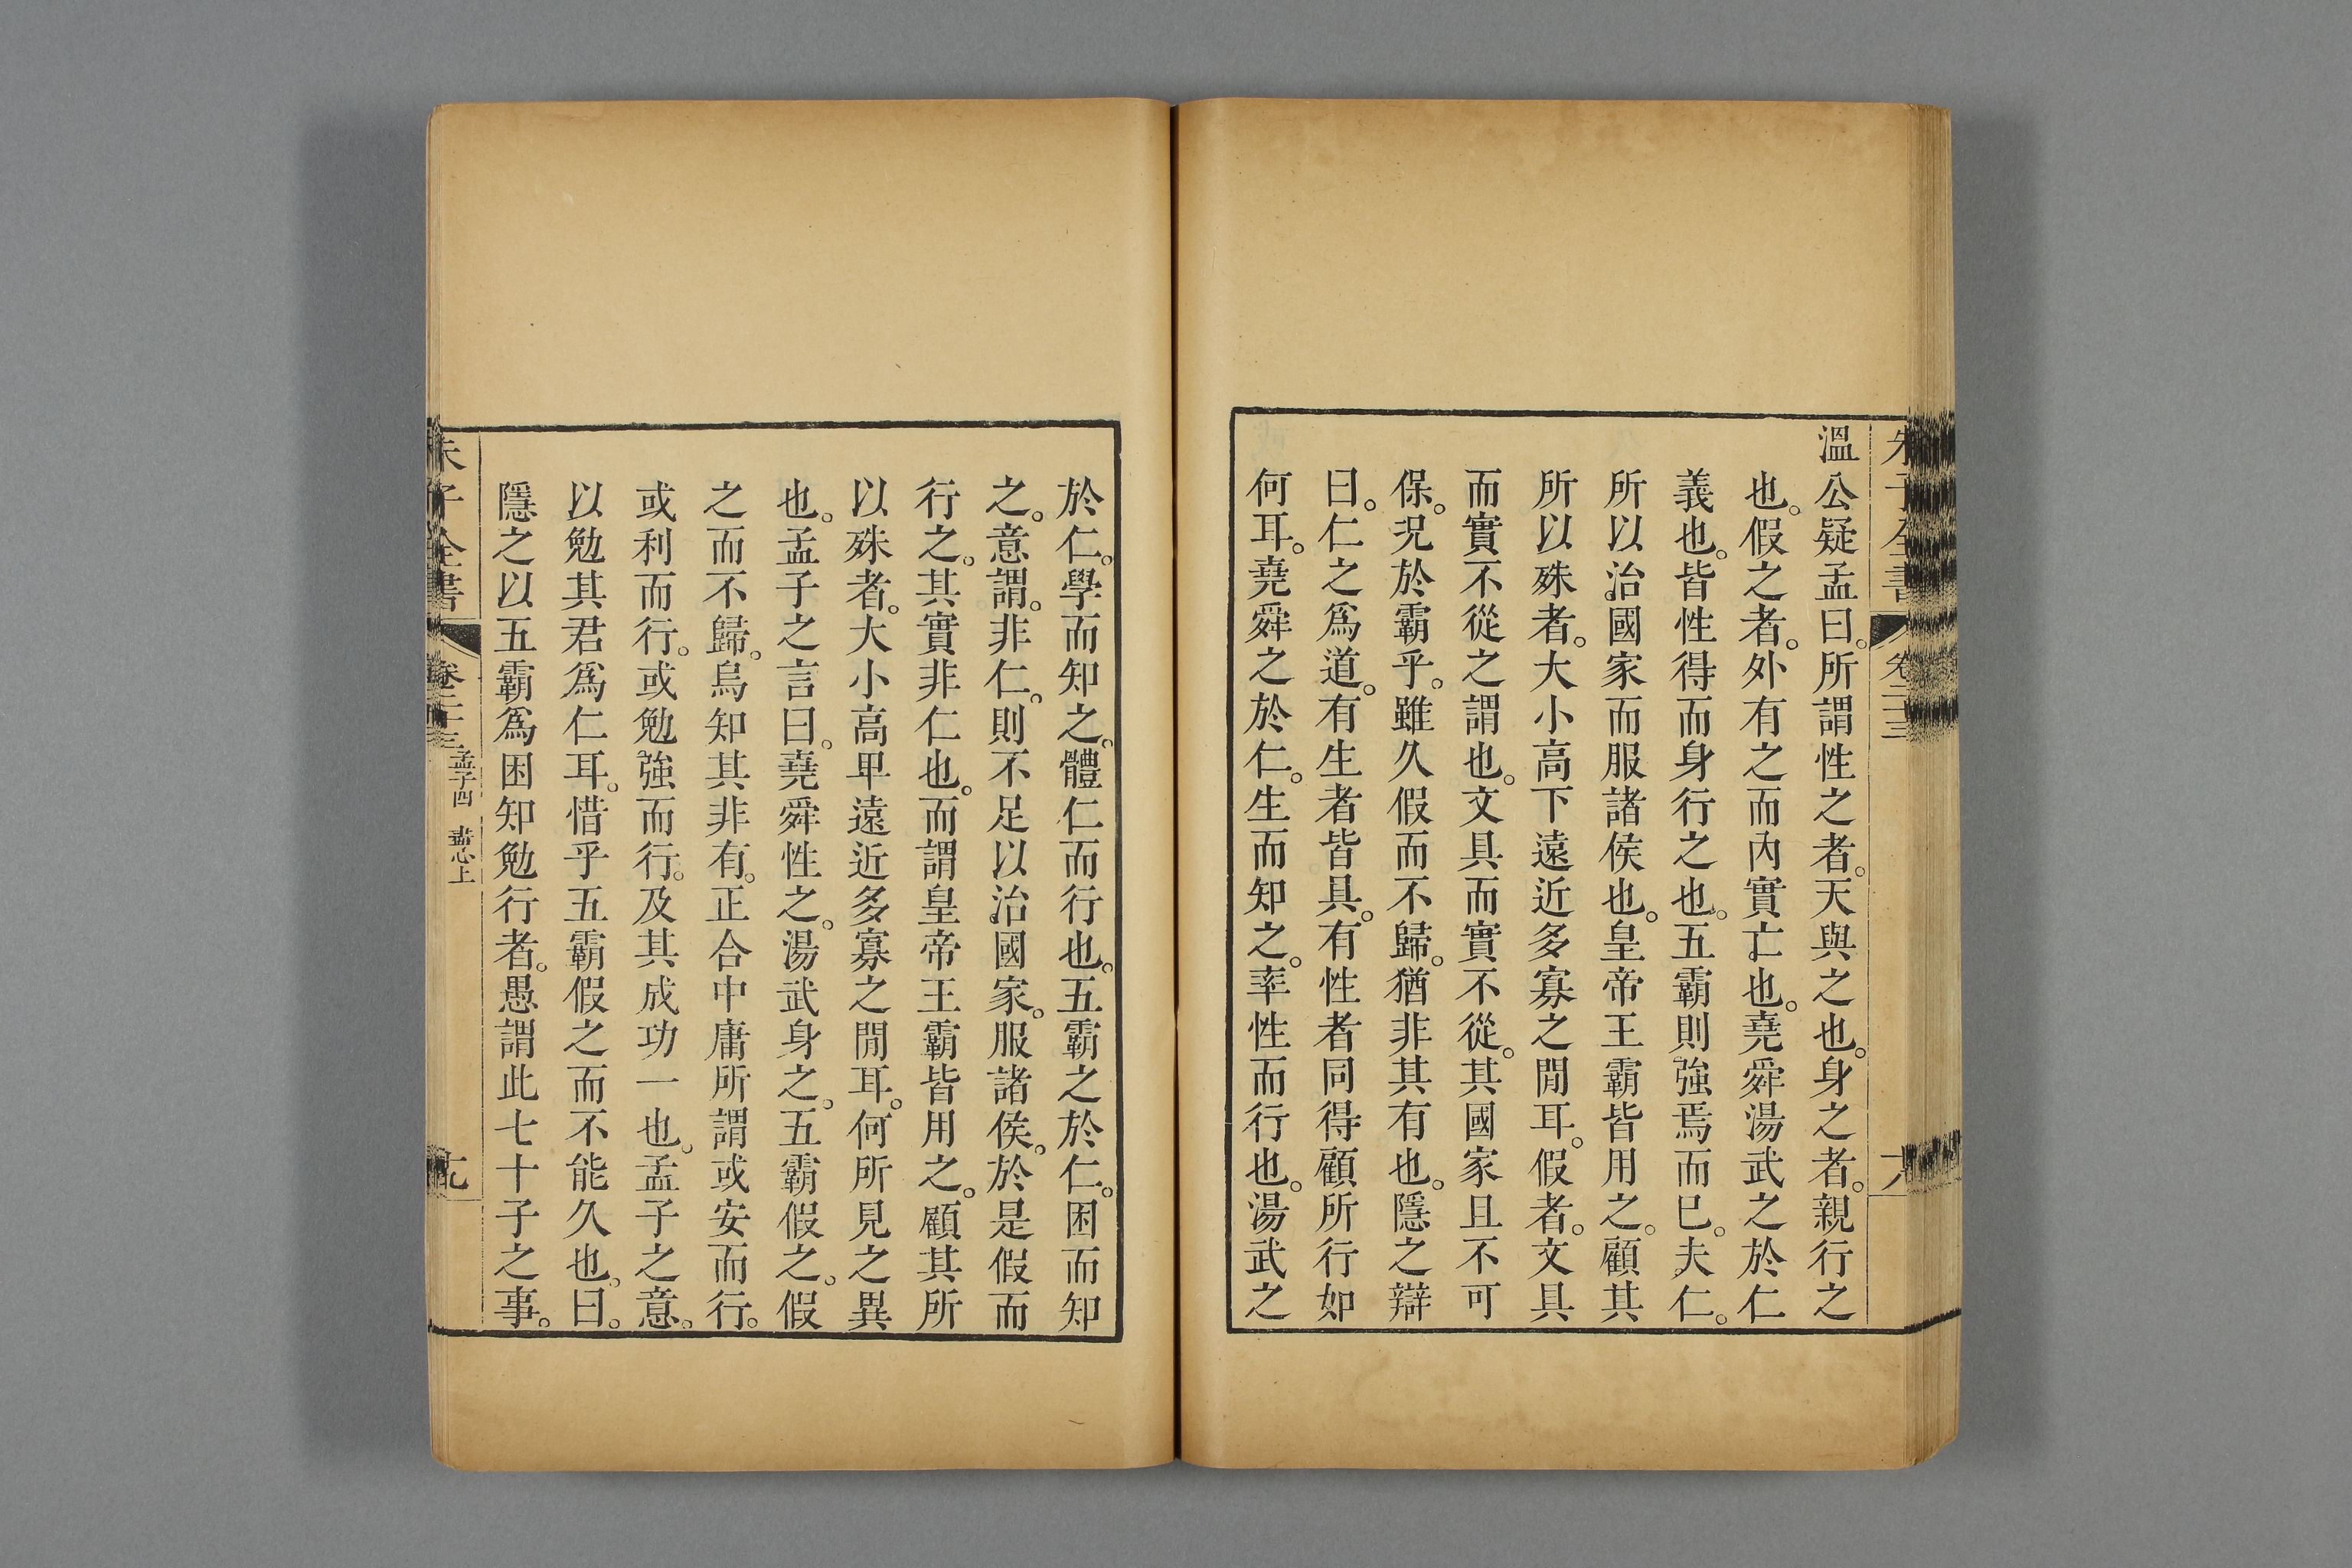 朱子全書 卷二十三
溫公疑孟曰。所謂性之者。天與之也。身之者。親行之
也。假之者。外有之而內實亡也。堯舜湯武之於仁
義也。皆性得而身行之也。五霸則強焉而已。夫仁。
所以治國家而服諸侯也。皇帝王霸皆用之。顧其
所以殊者。大小高下遠近多寡之閒耳。假者。文具
而實不從之謂也。文具而實不從。其國家且不可
保。況於霸乎。雖久假而不歸。猶非其有也。隱之辯
曰。仁之爲道。有生者皆具。有性者同得顧所行如
何耳。堯舜之於仁。生而知之。率性而行也。湯武之
於仁。學而知之。體仁而行也。五霸之於仁。困而知
之。意謂。非仁。則不足以治國家。服諸侯。於是假而
行之。其實非仁也。而謂皇帝王霸皆用之。顧其所
以殊者。大小高卑遠近多寡之閒耳。何所見之異
也。孟子之言曰。堯舜性之。湯武身之。五霸假之。假
之而不歸。烏知其非有。正合中庸所謂或安而行。
或利而行。或勉強而行。及其成功一也。孟子之意。
以勉其君爲仁耳。惜乎五霸假之而不能久也。曰。
隱之以五霸爲困知勉行者。愚謂此七十子之事。
朱子全書 卷二十三 孟子四 盡心上 十九